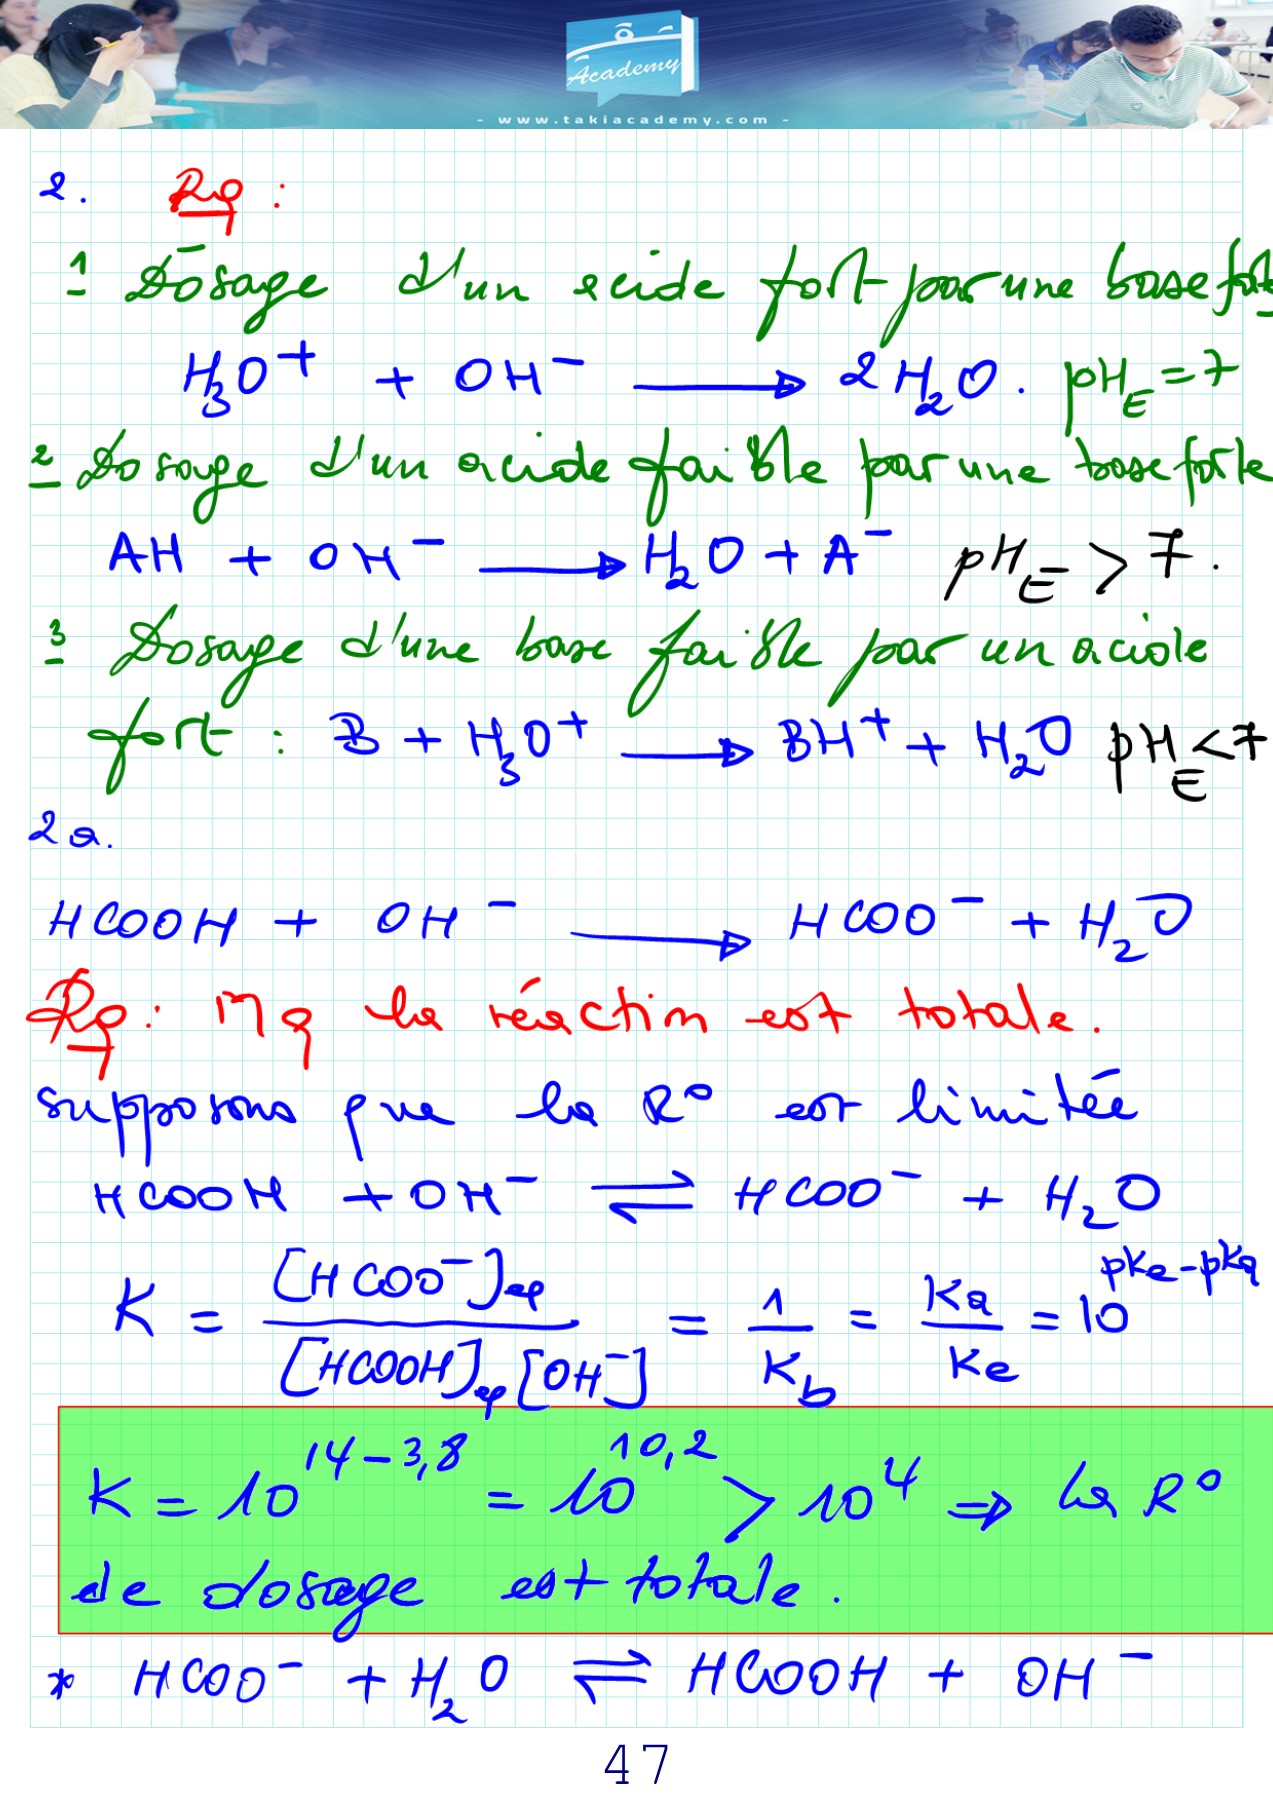 Academy
- www.takiacademy.com -
2. Rq :
1 Dosage d'un acide fort par une base forte
H₃O⁺ + OH⁻ → 2H₂O. pH_E = 7
2 Dosage d'un acide faible par une base forte
AH + OH⁻ → H₂O + A⁻ pH_E > 7.
3 Dosage d'une base faible par un acide
fort : B + H₃O⁺ → BH⁺ + H₂O pH_E < 7
2a.
HCOOH + OH⁻ → HCOO⁻ + H₂O
Rq : Mq la réaction est totale.
supposons que la R° est limitée
HCOOH + OH⁻ ⇌ HCOO⁻ + H₂O
K = [HCOO⁻]éq / [HCOOH]éq [OH⁻] = 1/Kb = Ka/Ke = 10^(pKe-pKa)
K = 10^(14-3,8) = 10^(10,2) > 10^4 ⇒ la R°
de dosage est totale.
* HCOO⁻ + H₂O ⇌ HCOOH + OH⁻
47